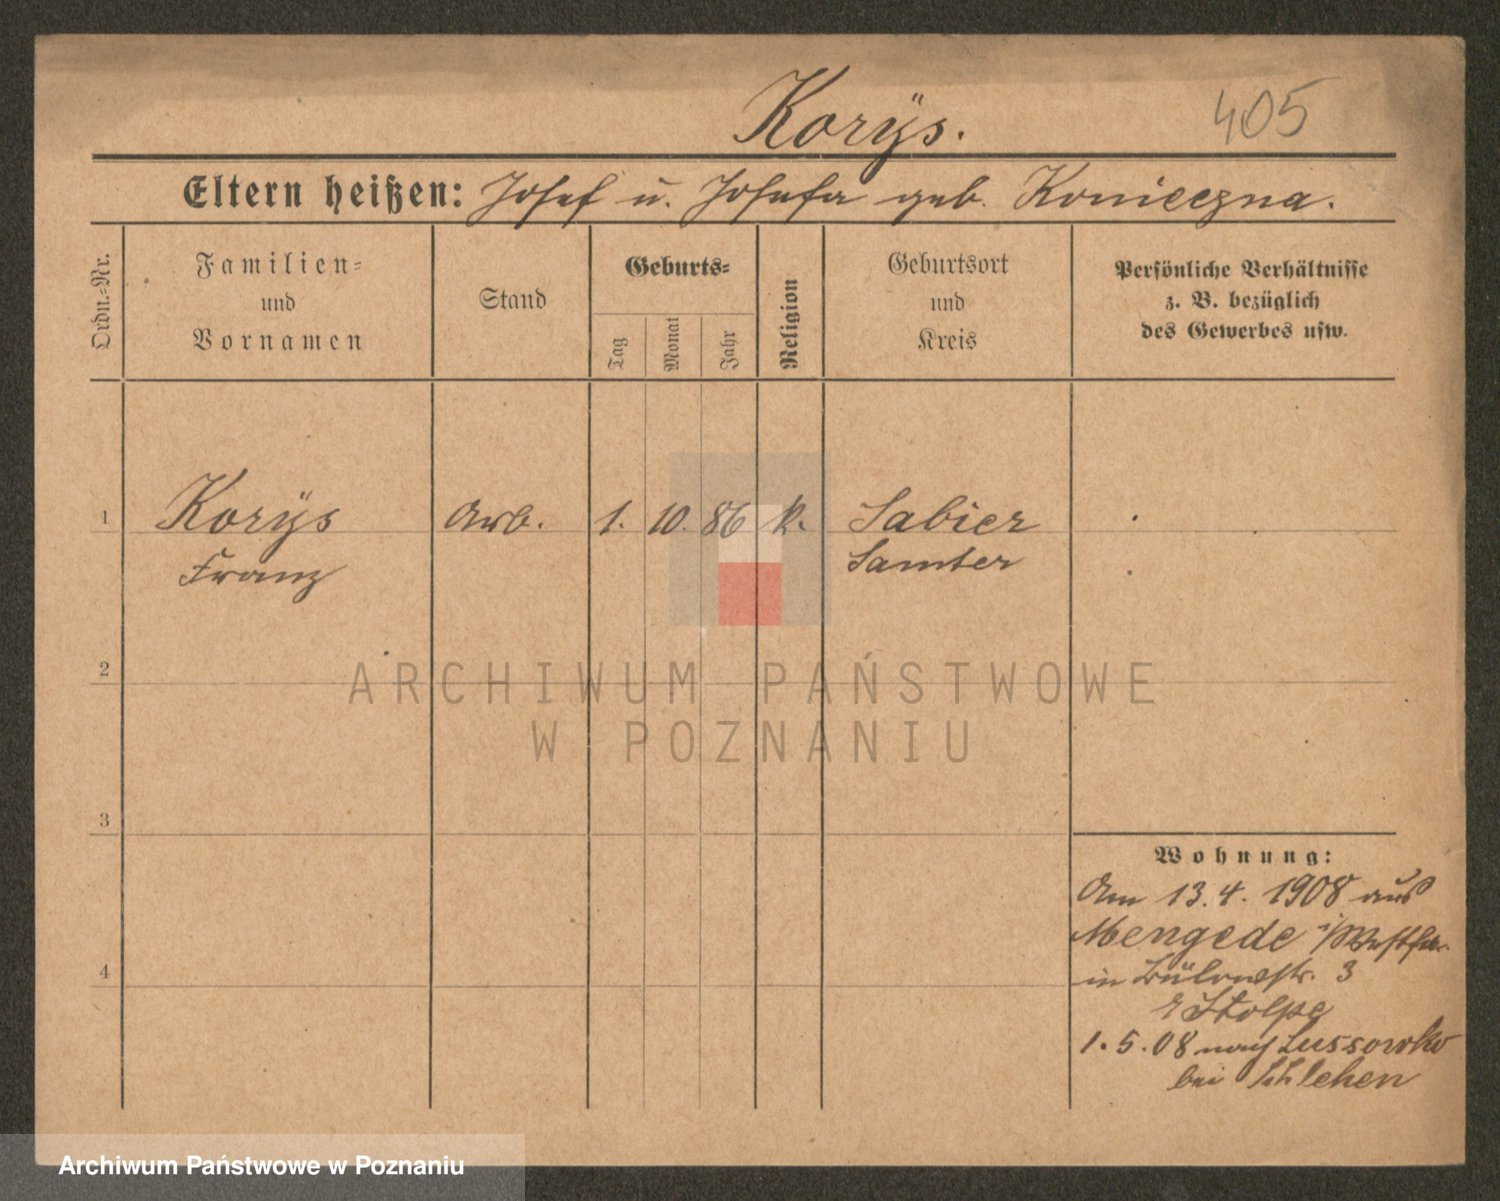 Korÿs.
405
Eltern heißen: Josef u. Josefa geb. Konieczna.
Ordn.-Nr.
Familien-
und
Vornamen
Stand
Geburts-
Tag
Monat
Jahr
Religion
Geburtsort
und
Kreis
Persönliche Verhältnisse
z. B. bezüglich
des Gewerbes usw.
1 Korÿs Arb. 1. 10. 86 k. Sabier
Franz Samter
2
ARCHIWUM PAŃSTWOWE
W POZNANIU
3
Wohnung:
Am 13.4.1908 aus
Mengede i/Westfa.
4
in Bülowstr. 3
Stolpe
1.5.08 nach Lussowko
bei Schlehen
Archiwum Państwowe w Poznaniu